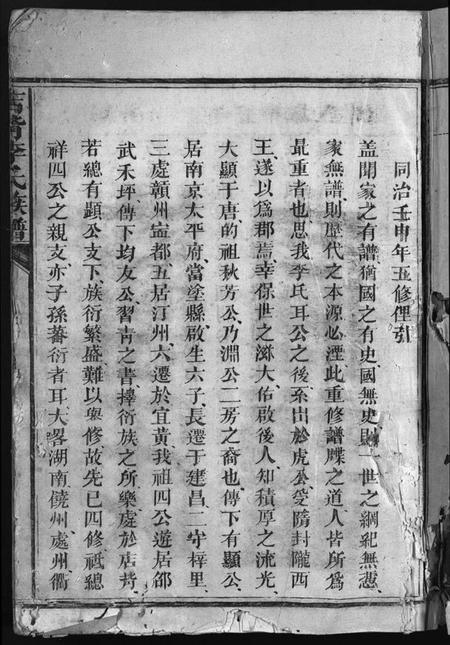 同治壬申年五修俚引
蓋聞家之有譜猶國之有史國無史則一世之綱紀無憑
家無譜則歷代之本源必湮此重修譜牒之道人皆所為
最重者也思我李氏耳公之後系出於虎公受隋封隴西
王遂以為郡焉幸保世之滋大佑啟後人知積厚之流光
大顯于唐的祖秋芳公乃淵公二房之裔也傳下有顯公
居南京太平府當塗縣啟生六子長遷于建昌二守梓里
三處贛州寧都五居汀州六遷於宜黃我祖四公遊居邵
武禾坪傳下均友公習青之書擇衍族之所樂處於店背
若總有顯公支下族衍繁盛難以與修故先已四修祗總
祥四公之親支亦子孫蕃衍者耳大畧湖南饒州處州衢
店背李氏族譜